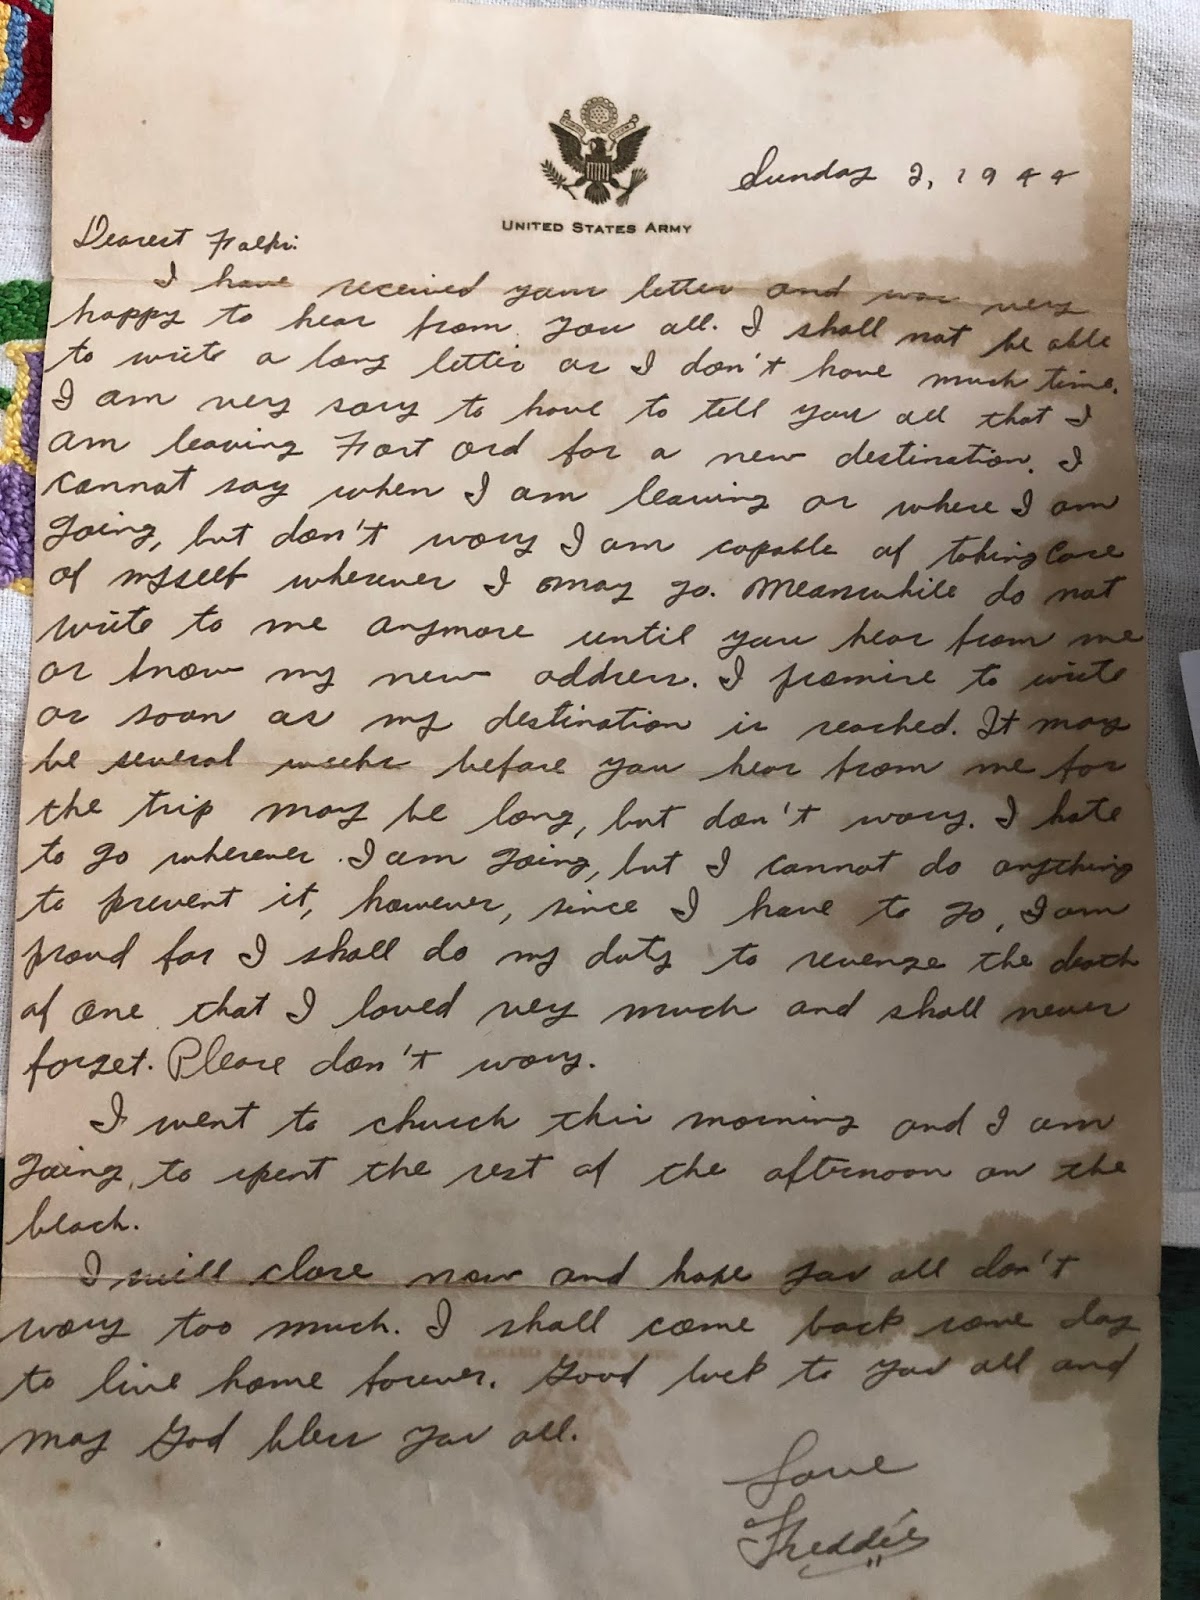 Sunday 2, 1944
UNITED STATES ARMY
Dearest Folks:
I have received your letter and was very
happy to hear from you all. I shall not be able
to write a long letter as I don't have much time.
I am very sory to have to tell you all that I
am leaving Fort Ord for a new destination. I
cannot say when I am leaving or where I am
going, but don't wory I am capable of taking care
of myself wherever I may go. Meanwhile do not
write to me anymore until you hear from me
or know my new address. I promise to write
as soon as my destination is reached. It may
be several weeks before you hear from me for
the trip may be long, but don't wory. I hate
to go wherever I am going, but I cannot do anything
to prevent it, however, since I have to go, I am
proud for I shall do my duty to revenge the death
of one that I loved very much and shall never
forget. Please don't wory.
I went to church this morning and I am
going to spent the rest of the afternoon on the
beach.
I will close now and hope you all don't
wory too much. I shall come back some day
to live home forever. Good luck to you all and
may God bless you all.
Love
Freddie